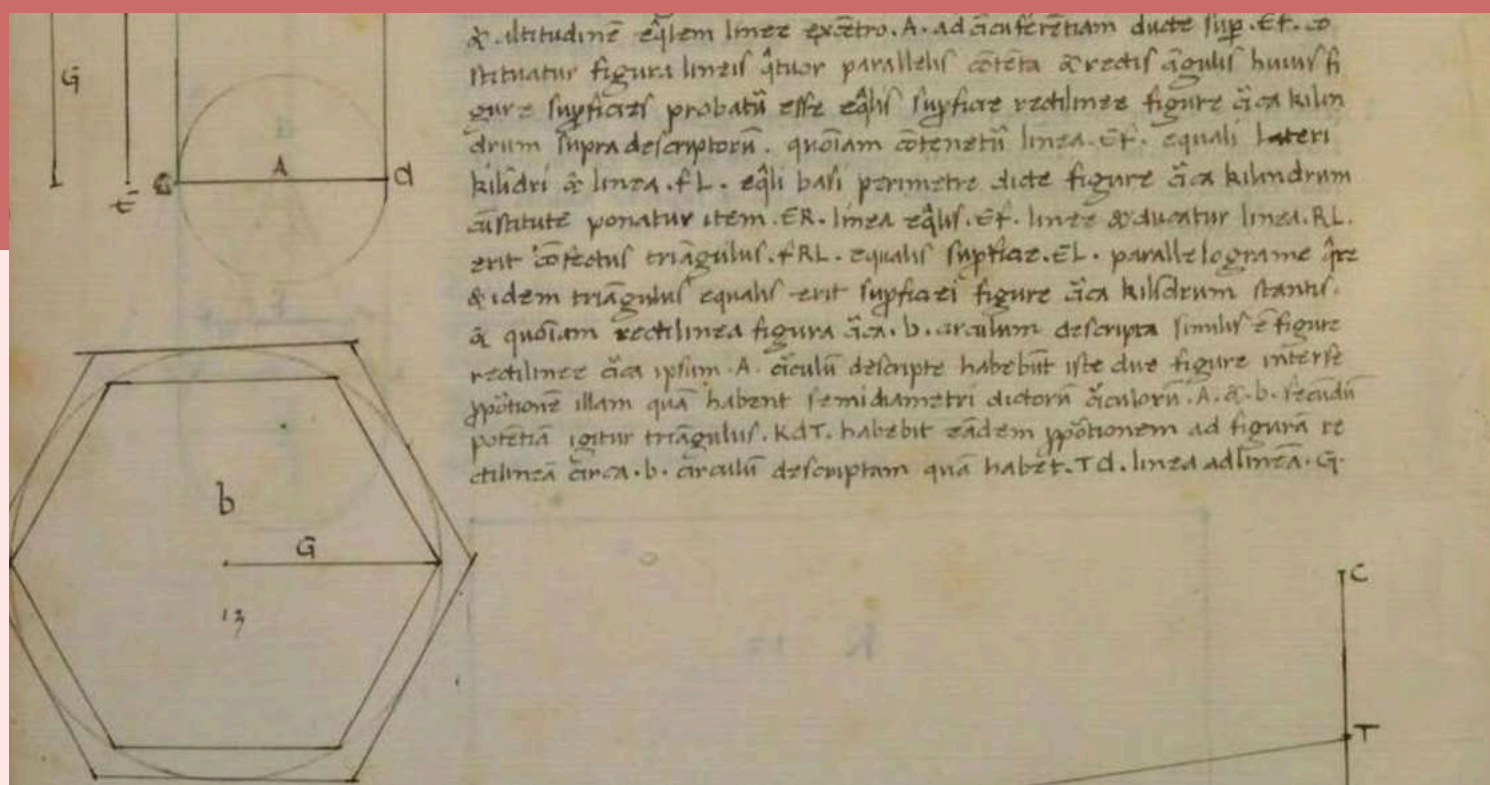 & altitudinē eq̄lem linee excētro. A. ad c̄icuferētiam ducte sup̱. Ef. co
stituatur figura lineis q̄tuor parallelis cōtēta & rectis āgulis huius fi
gure sup̱ficies probatū esse eq̄lis sup̱ficie rectilinee figure c̄ica kilin
drum supra descriptorū. quōiam cōtenetū linea. Ef. equali lateri
kilīdri & linea. fL. eq̄li basi perimetre dicte figure c̄ica kilindrum
cūstitute ponatur item. ER. linea eq̄lis. Ef. linee & ducatur linea. RL.
erit cōfectus triāgulus. fRL. equalis sup̱ficie. EL. parallelograme q̄re
& idem triāgulus equalis erit sup̱ficiei figure c̄ica kilīdrum stantis.
& quōiam rectilinea figura c̄ica. b. circulum descripta similis ē figure
rectilinee c̄ica ipsum. A. c̄iculū descripte habebūt iste due figure interse
p̱pōtionē illam quā habent semidiametri dictorū c̄iculorū. A. &. b. secūdū
potētiā igitur triāgulus. KdT. habebit eādem p̱pōtionem ad figurā re
ctilineā c̄irca. b. circulū descriptam quā habet. Td. linea ad lineā. G.
G
A
d
t
b
G
13
C
T